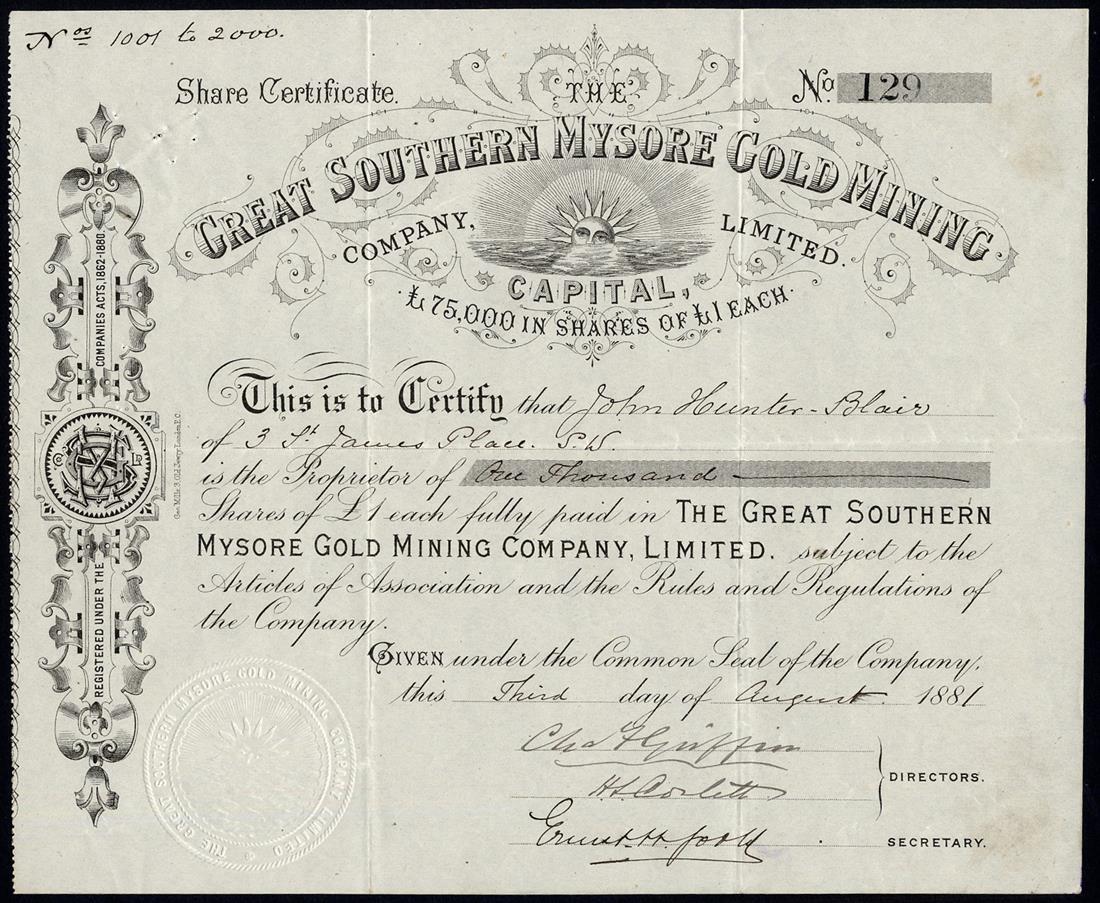 Nos 1001 to 2000.
Share Certificate.
No. 129
THE
GREAT SOUTHERN MYSORE GOLD MINING
COMPANY, LIMITED.
CAPITAL,
£75,000 IN SHARES OF £1 EACH.
This is to Certify that John Hunter-Blair
of 3 St. James Place. S.W.
is the Proprietor of One Thousand
Shares of £1 each fully paid in THE GREAT SOUTHERN
MYSORE GOLD MINING COMPANY, LIMITED. subject to the
Articles of Association and the Rules and Regulations of
the Company.
GIVEN under the Common Seal of the Company,
this Third day of August 1881
Chas F Griffin
DIRECTORS.
SECRETARY.
REGISTERED UNDER THE
COMPANIES ACTS, 1862-1880.
Geo. Mills. 3. Old Jewry. London E.C.
THE GREAT SOUTHERN MYSORE GOLD MINING COMPANY LIMITED